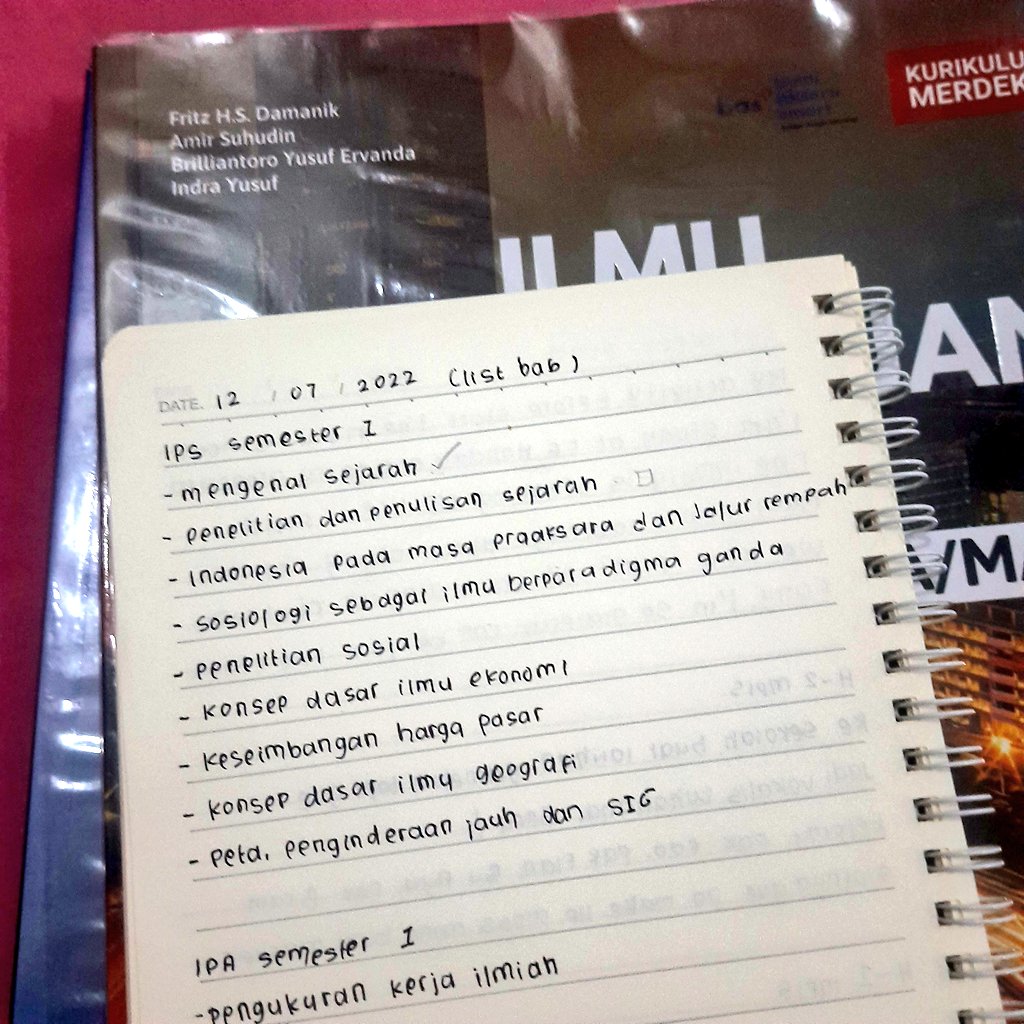 Fritz H.S. Damanik
Amir Suhudin
Brilliantoro Yusuf Ervanda
Indra Yusuf
KURIKULU
MERDEK
ILMU
AN
/MA
DATE. 12 / 07 / 2022 (list bab)
IPS semester I
- mengenal sejarah ✓
- penelitian dan penulisan sejarah □
- Indonesia pada masa praaksara dan Jalur rempah
- sosiologi sebagai ilmu berparadigma ganda
- penelitian sosial
- konsep dasar ilmu ekonomi
- keseimbangan harga pasar
- konsep dasar ilmu geografi
- peta, penginderaan jauh dan SIG
IPA semester I
- pengukuran kerja ilmiah